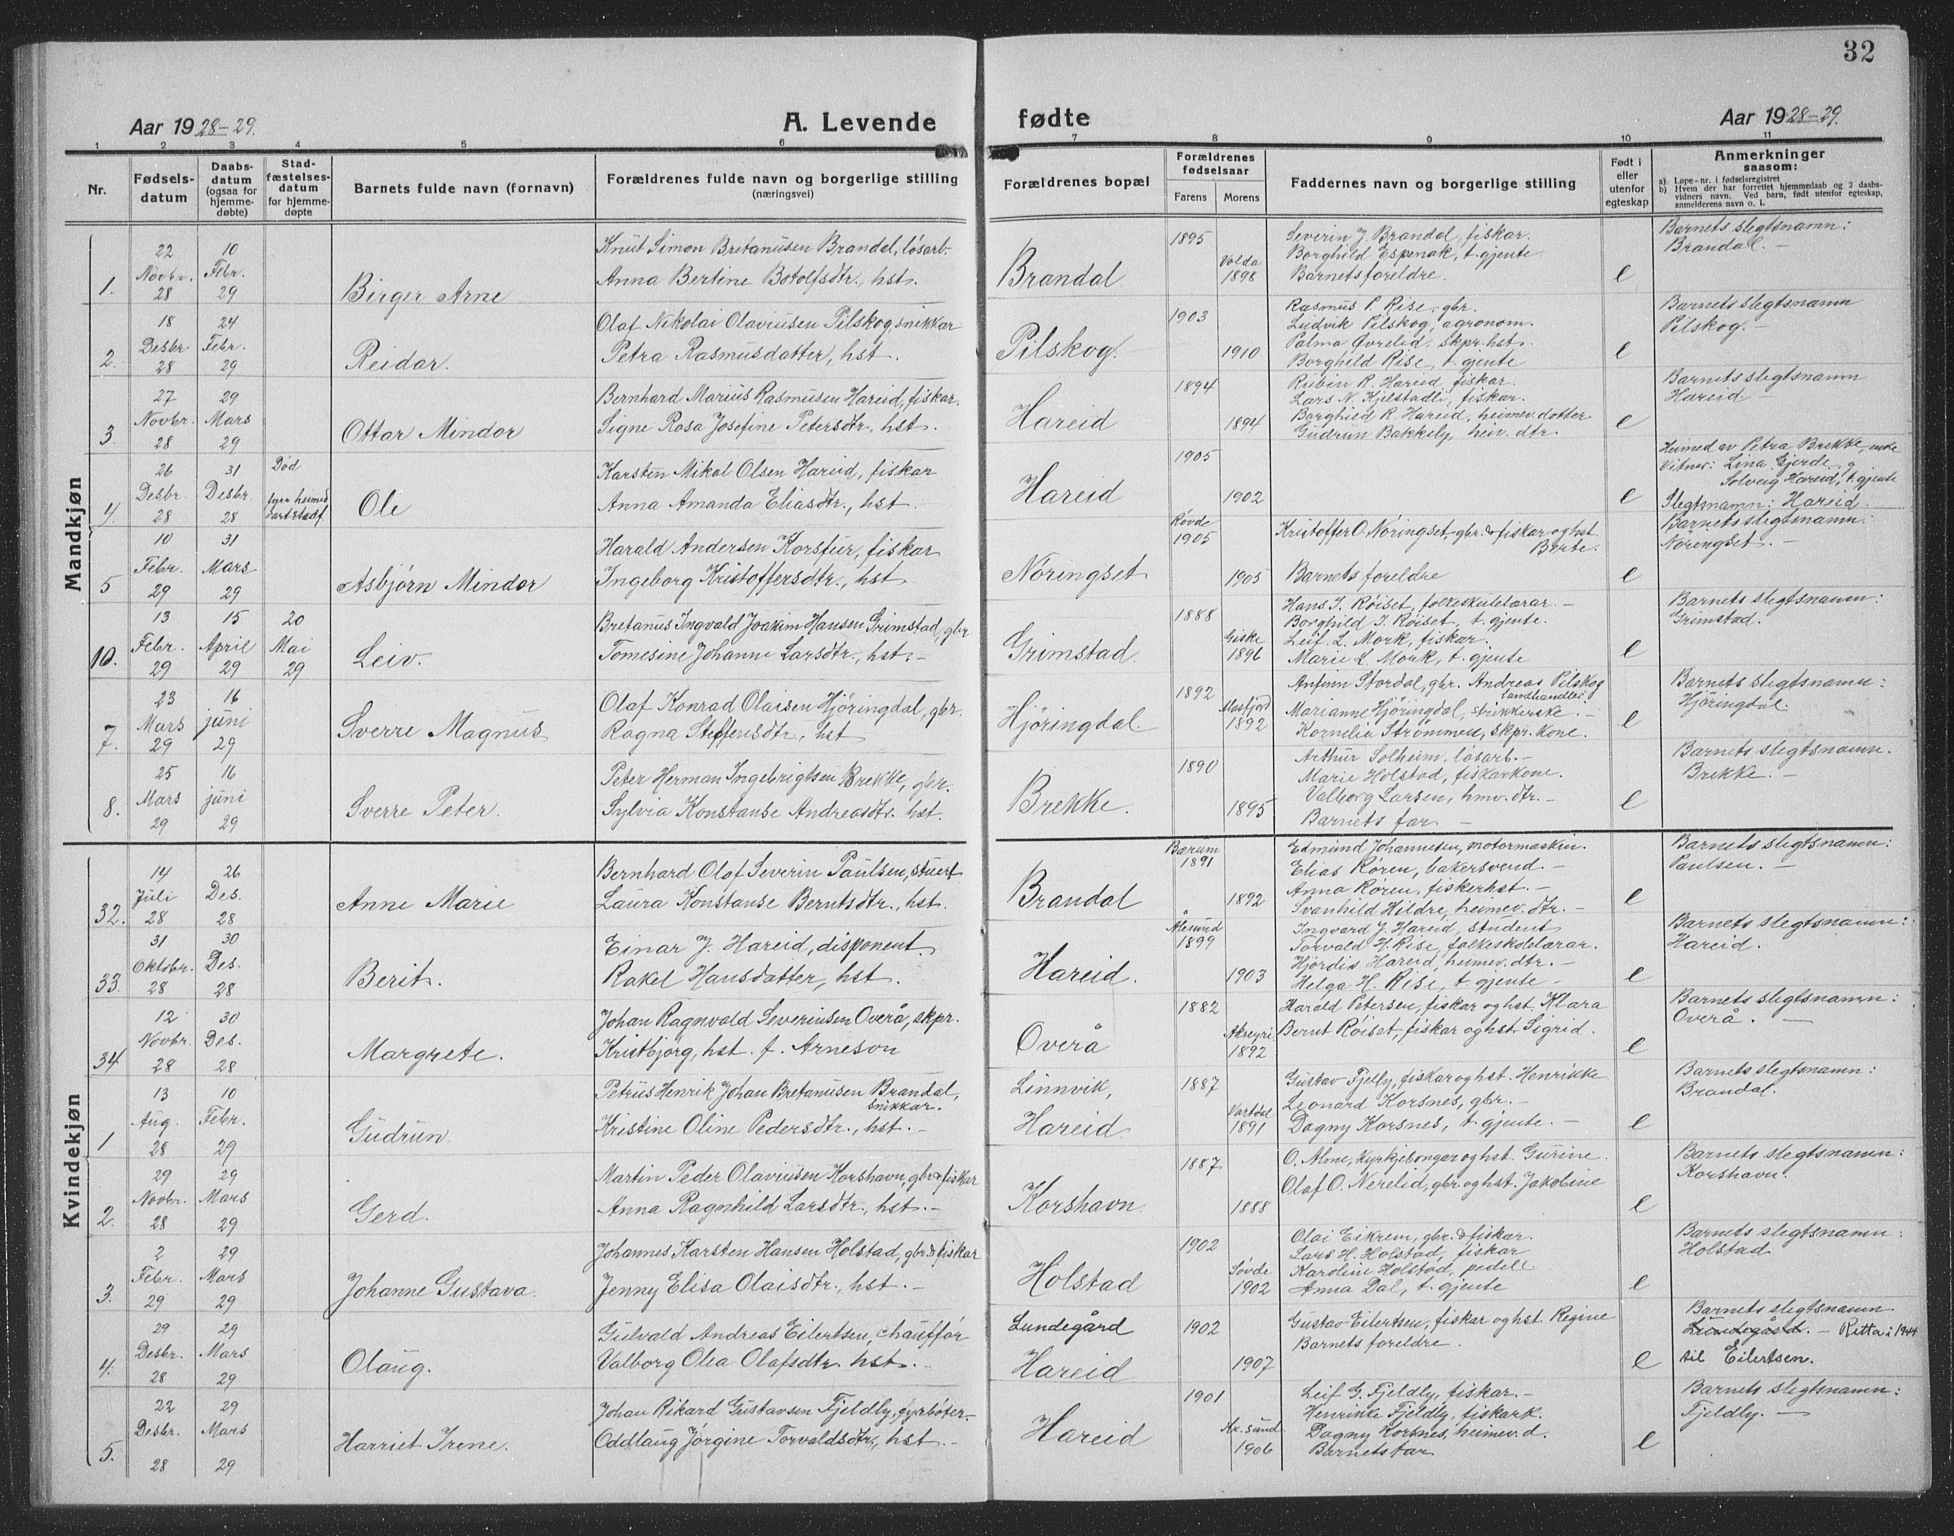 32
Aar 1928-29.
A. Levende fødte
Aar 1928-29.
1 2 3 4 5 6 7 8 9 10 11
Nr.
Fødsels-
datum
Daabs-
datum
(ogsaa for
hjemme-
døbte)
Stad-
fæstelses-
datum
for hjemme-
døpte
Barnets fulde navn (fornavn)
Forældrenes fulde navn og borgerlige stilling
(næringsvei)
Forældrenes bopæl
Forældrenes
fødselsaar
Farens
Morens
Faddernes navn og borgerlige stilling
Født i
eller
utenfor
egteskap
Anmerkninger
saasom:
a) Løpe-nr. i fødselsregistret
b) Hvem der har forrettet hjemmedaab og 2 daabs-
vidners navn. Ved barn, født utenfor egteskap,
anmelderens navn o. l.
Mandkjøn
1. 22 Novbr. 28
10 Febr. 29
Birger Arne
Knut Simon Bretanusen Brandal, løsarb.
Anna Bertine Botolfsdtr., hst.
Brandal
1895
Volda
1898
Severin J. Brandal, fiskar.
Borghild Espenak, t. gjente.
Barnets foreldre.
e
Barnets slegtsnamn:
Brandal. -
2. 18 Desbr. 28
24 Febr. 29
Reidar.
Olaf Nikolai Olaviusen Pilskog, snikkar
Petra Rasmusdatter, hst.
Pilskog.
1903
1910
Rasmus P. Rise, gbr.
Ludvik Pilskog, agronom.
Palma Øvrelid, skpr. hst.
Borghild Rise, t. gjente
e
Barnets slegtsnamn
Pilskog. -
3. 27 Novbr. 28
29 Mars 29
Ottar Mindor
Bernhard Marius Rasmusen Hareid, fiskar.
Signe Rosa Josefine Petersdtr., hst.
Hareid
1894
1894
Rubin R. Hareid, fiskar.
Lars N. Kjelstadli, fiskar.
Borghild R. Hareid, heimev. dotter
Gudrun Bakkely, heiv. dtr.
e
Barnets slegtsnamn
Hareid -
4. 26 Desbr. 28
31 Desbr. 28
Død
Ole
Karsten Mikal Olsen Hareid, fiskar
Anna Amanda Eliasdtr., hst
Hareid
1905
1902
e
Heimed av Petra Brekke, enke
Vitner: Lina Gjerde og
Solveig Hareid, t. gjente
Slegtsnamn: Hareid.
5 10 Febr. 29
31 Mars 29
Asbjørn Mindor
Harald Andersen Korsfur, fiskar
Ingeborg Kristoffersdtr., hst
Nøringset
Røvde
1905
1905
Kristoffer O. Nøringset, gbr. & fiskar og hst
Berte.
Barnets foreldre
e
Barnets slegtsnamn:
Nøringset. -
10. 13 Febr. 29
15 April 29
20 Mai 29
Leiv.
Bretanus Ingvald Joakim Hansen Grimstad, gbr
Tomesine Johanne Larsdtr., hst. -
Grimstad.
1888
Giske
1896
Hans I. Røiset, folkeskulelærar. -
Borghild I. Røiset, t. gjente.
Leif L. Mork, fiskar.
Marie L. Mork, t. gjente
e
Barnets slegtsnamn:
Grimstad.
7. 23 Mars 29
16 juni 29
Sverre Magnus
Olaf Konrad Olaisen Hjøringdal, gbr.
Ragna Steffensdtr., hst
Hjøringdal.
1892
Masfjord
1892
Anfinn Stordal, gbr. Andreas Pilskog
landhandler
Marianne Hjøringdal, strikkerske. -
Kornelia Strømmen, skpr. kone.
e
Barnets slegtsnamn:
Hjøringdal.
8. 25 Mars 29
16 juni 29
Sverre Peter.
Peter Herman Ingebrigtsen Brekke, gbr.
Sylvia Konstanse Andreasdtr. hst.
Brekke.
1890
1895
Arthur Solheim, løsarb. -
Marie Holstad, fiskarkone.
Valborg Larsen, hmv. dtr. -
Barnets far. -
e
Barnets slegtsnamn.
Brekke. -
Kvindekjøn
32. 14 Juli 28
26 Des. 28
Anne Marie
Bernhard Olaf Severin Paulsen, stuert
Laura Konstanse Berntsdtr., hst.
Brandal
Bærum
1891
1892
Edmund Johannesen, motormaskin.
Elias Røren, bakersvend. -
Anna Røren, fiskerhst. -
Svanhild Hildre, heimev. dtr. -
e
Barnets slegtsnamn:
Paulsen. -
33. 31 Oktobr. 28
30 Des. 28
Berit.
Einar J. Hareid, disponent.
Rakel Hansdatter, hst.
Hareid.
Ålesund
1899
1903
Ingvard J. Hareid, student
Torvald H. Rise, folkeskolelærar.
Hjørdis Hareid, heimev. dtr. -
Helga H. Rise, t. gjente -
e
Barnets slegtsnamn:
Hareid.
34 12 Novbr. 28
30 Des. 28
Margrete.
Johan Ragnvald Severinsen Overå, skpr.
Kristbjörg, hst. f. Arneson
Overå
1882
Akreyri
1892
Harald Petersen, fiskar og hst. Klara
Bernt Røiset, fiskar og hst. Sigrid.
e
Barnets slegtsnamn:
Overå. -
1 13 Aug. 28
10 Febr. 29
Gudrun.
Petrus Henrik Johan Bretanusen Brandal,
snikkar.
Kristine Oline Pedersdtr., hst. -
Linnvik,
Hareid
1887
Vartdal
1891
Gustav Fjelly, fiskar og hst. Henrikke
Leonard Korsnes, gbr. -
Dagny Korsnes, t. gjente. -
e
Barnets slegtsnamn:
Brandal.
2. 29 Novbr. 28
29 Mars 29
Gerd.
Martin Peder Olaviusen Korshavn, gbr & fiskar
Anna Ragnhild Larsdtr., hst. -
Korshavn.
1887
1888
O. Alme, Kyrkjesongar og hst. Gurine.
Olaf O. Nerelid, gbr. og hst. Jakobine
e
Barnets slegtsnamn:
Korshavn.
3. 2 Febr. 29
29 Mars 29
Johanne Gustava.
Johannes Karsten Hansen Holstad, gbr & fiskar
Jenny Elisa Olaisdtr., hst. -
Holstad
1902
Søvde
1902
Olai Eikrem, gbr. & fiskar.
Lars H. Holstad, fiskar
Karoline Holstad, pedell
Anna Dal, t. gjente
e
Barnets slegtsnamn:
Holstad
4. 29 Desbr. 28
29 Mars 29
Olaug.
Gulvald Andreas Eilertsen, chauffør
Valborg Olea Olafsdtr. hst. -
Lundegård
Hareid
1902
1907
Gustav Eilertsen, fiskar og hst. Regine
Barnets foreldre.
e
Barnets slegtsnamn
Lundegård. - Retta i 1944
til Eilertsen.
5. 22 Desbr. 28
29 Mars 29
Harriet Irene.
Johan Rikard Gustavsen Fjeldly, fyrbøter.
Oddlaug Jørgine Torvaldsdtr., hst. -
Hareid
1901
Kr.sund
1906
Leif G. Fjeldly, fiskar. -
Henrikke Fjeldly, fiskark.
Dagny Korsnes, heimev. d.
Barnets far
e
Barnets slegtsnamn:
Fjeldly. -